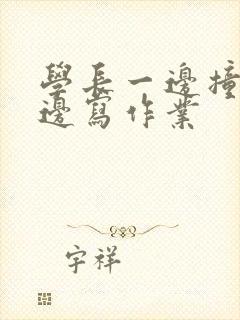 學長一邊撞
邊寫作業
宇祥